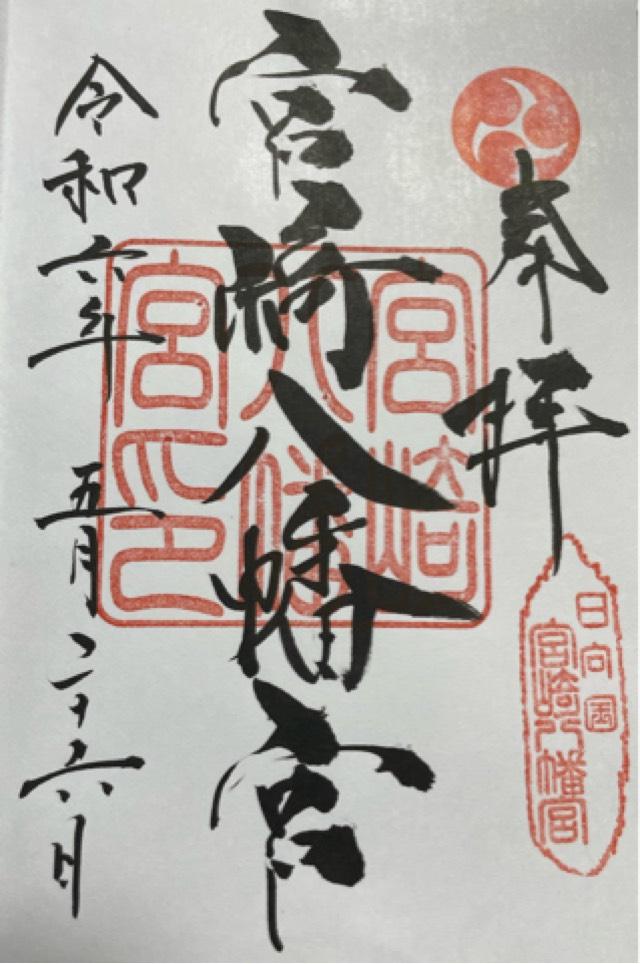 奉拝
日向国
宮崎八幡宮
宮崎八幡宮
宮崎
八幡
宮印
令和六年 五月二十六日